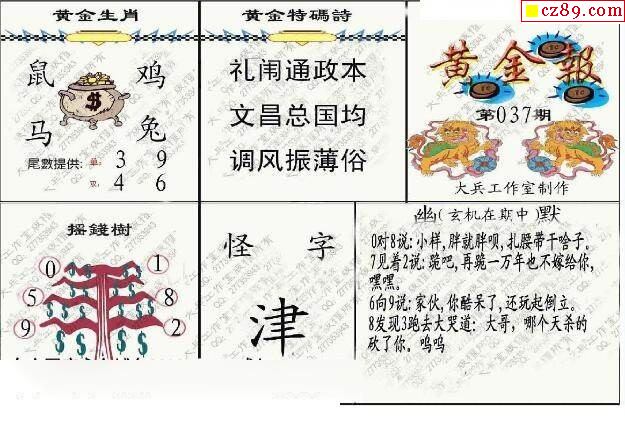 cz89.com
黄金生肖
鼠
鸡
$
马
兔
尾數提供:
单:
3
9
双:
4
6
黄金特碼詩
礼闹通政本
文昌总国均
调风振薄俗
黄金報
第037期
大兵工作室制作
摇錢樹
0
1
5
8
9
2
怪字
津
幽(玄机在期中)默
0对8说:小样,胖就胖呗,扎腰带干啥子。
7见着2说:跪吧,再跪一万年也不嫁给你,
嘿嘿。
6向9说:家伙,你酷呆了,还玩起倒立。
8发现3跑去大哭道:大哥,哪个天杀的
砍了你。呜呜